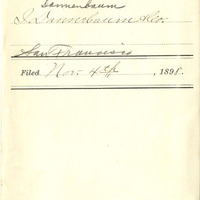 Dannenbaum
J. Dannenbaum
San Francisco
Filed Nov. 4th, 1898.